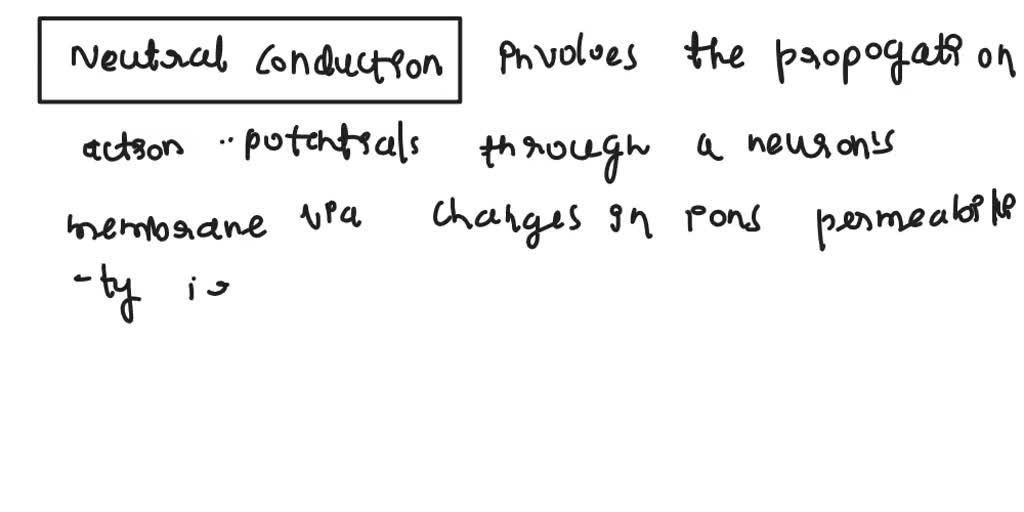 Neutral Conduction involves the propogation
action potentials through a neuron's
membrane via changes in ions permeabili
-ty is